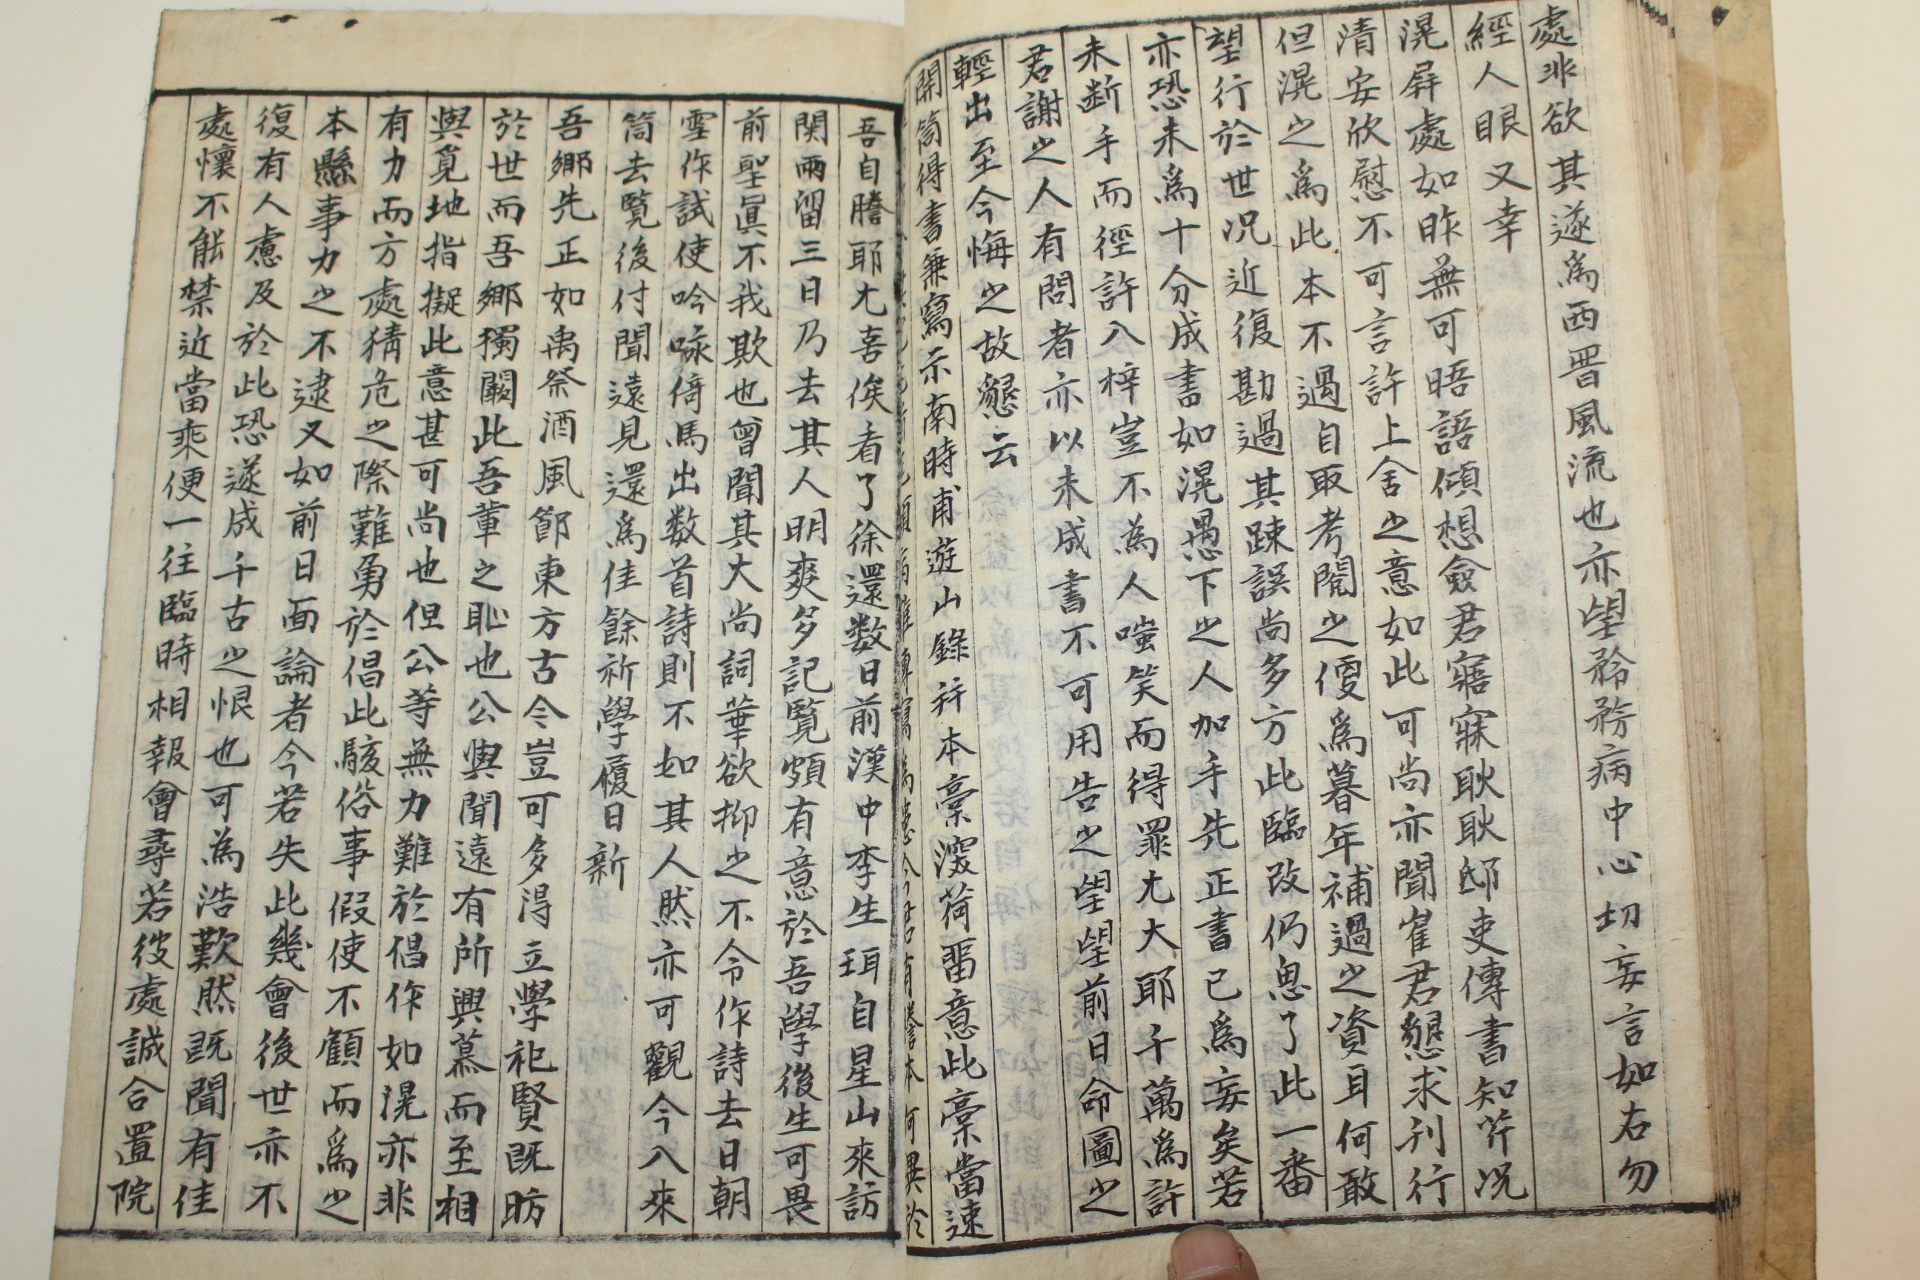 處非欲其遂爲西晋風流也亦望矜務病中心切妄言如右勿
經人眼又幸
滉屛處如昨無可晤語傾想僉君寤寐耿耿邸吏傳書知芹况
清安欣慰不可言許上舍之意如此可尚亦聞崔君懇求刋行
但滉之爲此本不過自取考閱之便爲暮年補過之資耳何敢
望行於世况近復勘過其踈誤尚多方此臨改仍思了此一番
亦恐未爲十分成書如滉愚下之人加手先正書已爲妄矣若
未斷手而徑許入梓豈不為人嗤笑而得罪尤大耶千萬爲許
君謝之人有問者亦以未成書不可用告之望望前日命圖之
輕出至今悔之故懇云
開筒得書兼寫示南時甫遊山錄幷本藁深荷留意此藁當速
吾自謄耶尤喜俟看了徐還数日前漢中李生珥自星山來訪
関雨留三日乃去其人明爽多記覽頗有意於吾學後生可畏
前聖眞不我欺也曾聞其大尚詞華欲抑之不令作詩去日朝
雪作試使吟咏倚馬出数首詩則不如其人然亦可觀今入來
筒去覽後付聞遠見還爲佳餘祈學履日新
吾鄉先正如禹祭酒風節東方古今豈可多得立學祀賢既昉
於世而吾鄉獨闕此吾輩之恥也公與聞遠有所興慕而至相
與覓地指擬此意甚可尚也但公等無力難於倡作如滉亦非
有力而方處猜危之際難勇於倡此駭俗事假使不顧而爲之
本縣事力之不逮又如前日面論者今若失此幾會後世亦不
復有人慮及於此恐遂成千古之恨也可為浩歎然既聞有佳
處懷不能禁近當乘便一往臨時相報會尋若彼處誠合置院